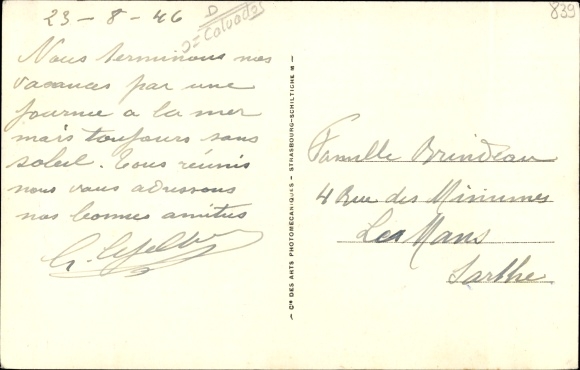 23-8-46
D
Calvados
839
Nous terminons nos
vacances par une
journee a la mer
mais toujours sans
soleil. Tous réunis
nous vous adressons
nos bonnes amities
Cie DES ARTS PHOTOMECANIQUES - STRASBOURG-SCHILTIGHEIM
Famille Brindeau
4 Rue des Minimes
Le Mans
Sarthe